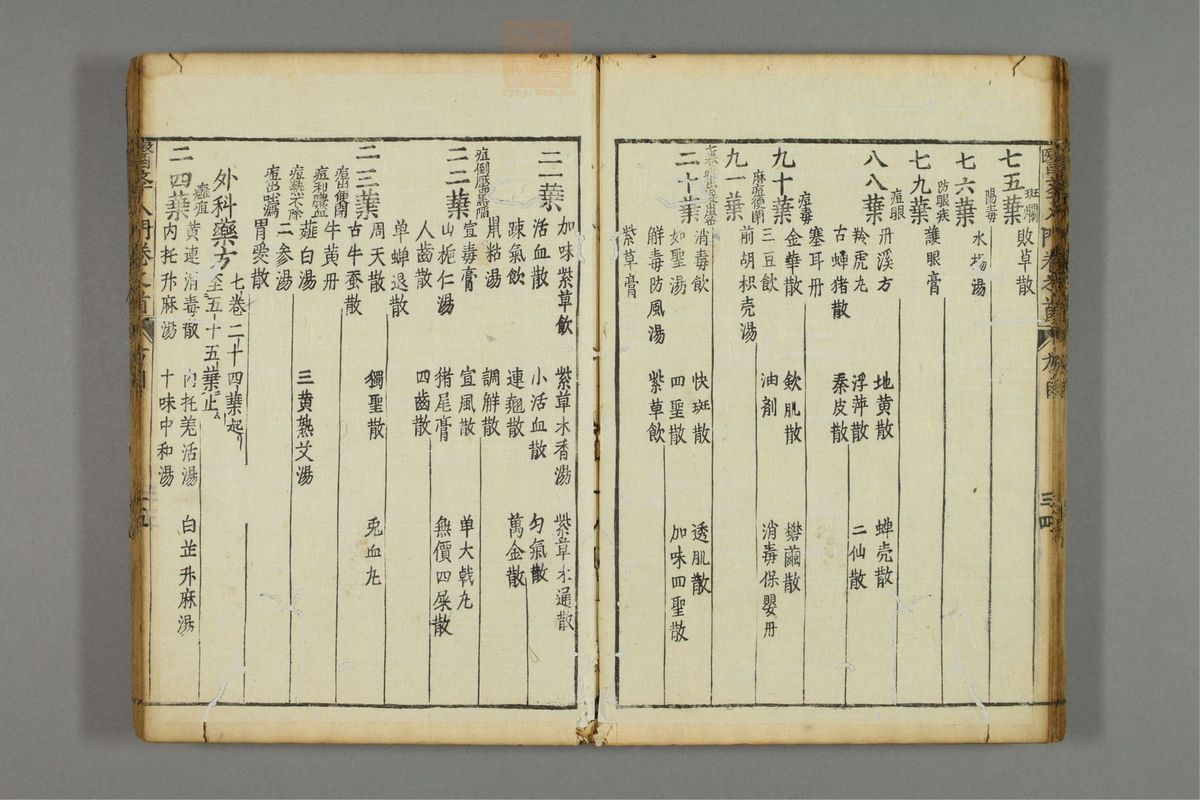 七五葉
斑爛 敗草散
七六葉
陽毒 水楊湯
防眼疾
七九葉 護眼膏
痘眼
八八葉 丹溪方 地黄散 蟬壳散
羚虎丸 浮萍散 二仙散
古蟬猪散 秦皮散
痘毒 塞耳丹
九十葉 金華散 欽肌散 礬繭散
三豆飲 油剤 消毒保嬰丹
麻痘 前胡枳壳湯
九一葉
消毒飲 快斑散 透肌散
二十葉 如聖湯 四聖散 加味四聖散
解毒防風湯 紫草飲
紫草膏
三四
二一葉 加味紫草飲 紫草木香湯 紫草木通散
活血散 小活血散 匀氣散
踈氣飲 連翹散 萬金散
鼠粘湯 調解散
痘倒靨黑陷
二二葉 宣毒膏 宣風散 单大戟丸
山梔仁湯 猪尾膏 無價四屎散
人齒散 四齒散
单蟬退散
二三葉 周天散 獨聖散 兎血丸
古牛蚕散
痘出 牛黄丹
痘和
痘熱不除 薤白湯 三黄熟艾湯
痘出 二參湯
胃愛散
外科藥方 七卷二十四葉起
至五十五葉止
癰疽 黄連消毒散 内托羌活湯 白芷升麻湯
二四葉 内托升麻湯 十味中和湯